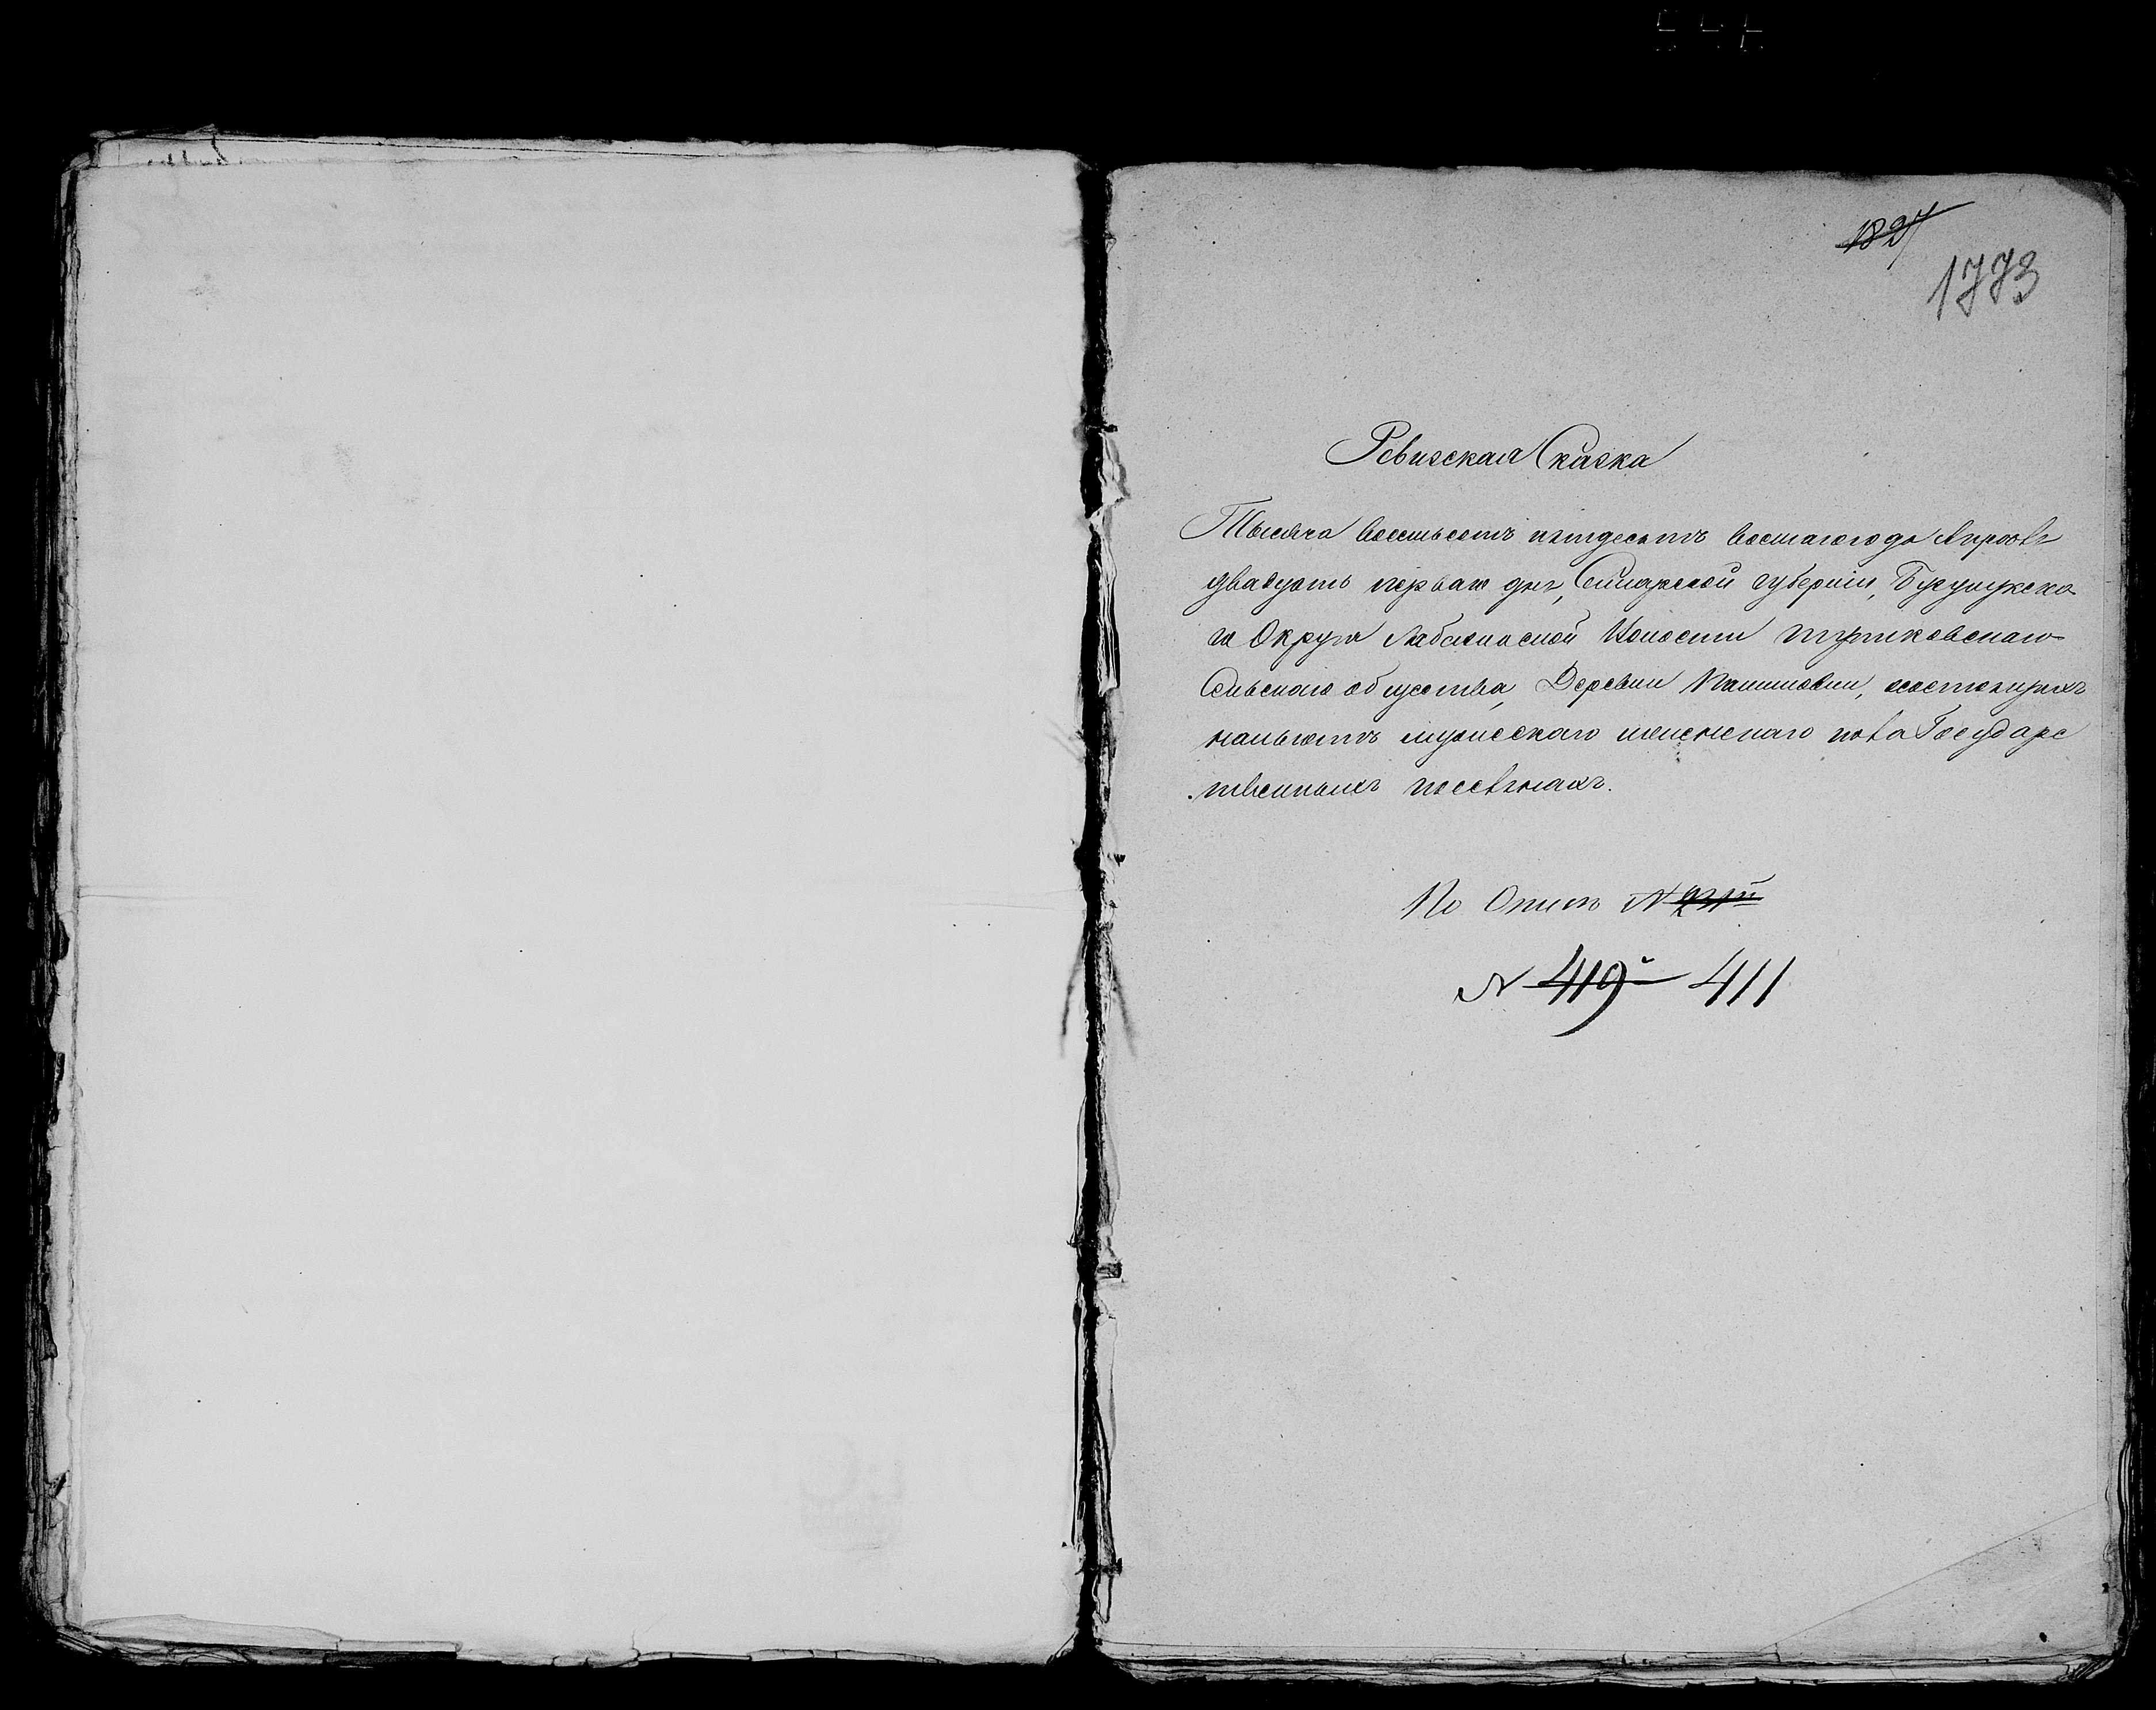 1827
1773
Ревизская Сказка
Тысяча восемьсотъ пятдесятъ восмаго года Апреля
двадцать перваго дня, Самарской губернiи, Бузулукска
го Округа Лабазинской Волости
Сельскаго общества, Деревни Пашковки, состоящихъ
налицо мужескаго женскаго пола Государс
твенныхъ поселянахъ.
По Описи №
№ 419й 411